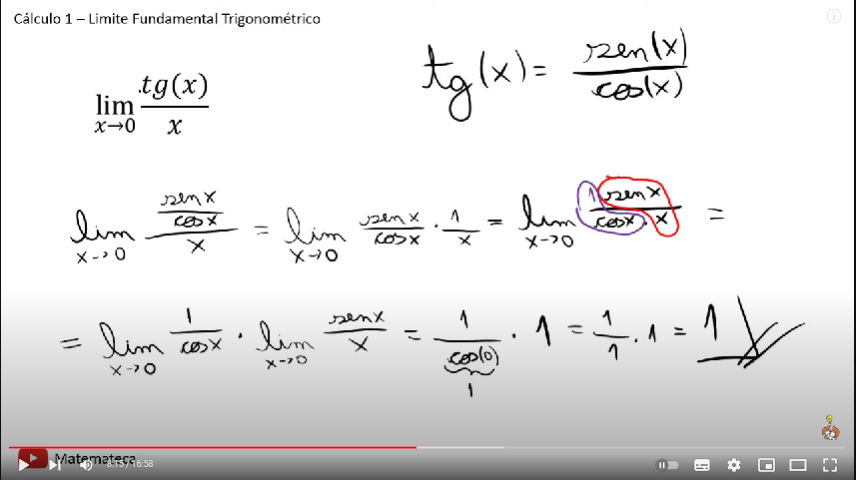 Cálculo 1 – Limite Fundamental Trigonométrico
lim x→0 tg(x)/x
tg(x) = sen(x)/cos(x)
lim x→0 (sen x/cos x)/x = lim x→0 sen x/cos x · 1/x = lim x→0 1 sen x/cos x · x =
= lim x→0 1/cos x · lim x→0 sen x/x = 1/cos(0) · 1 = 1/1 · 1 = 1
1
Matemateca
8:15 / 16:58